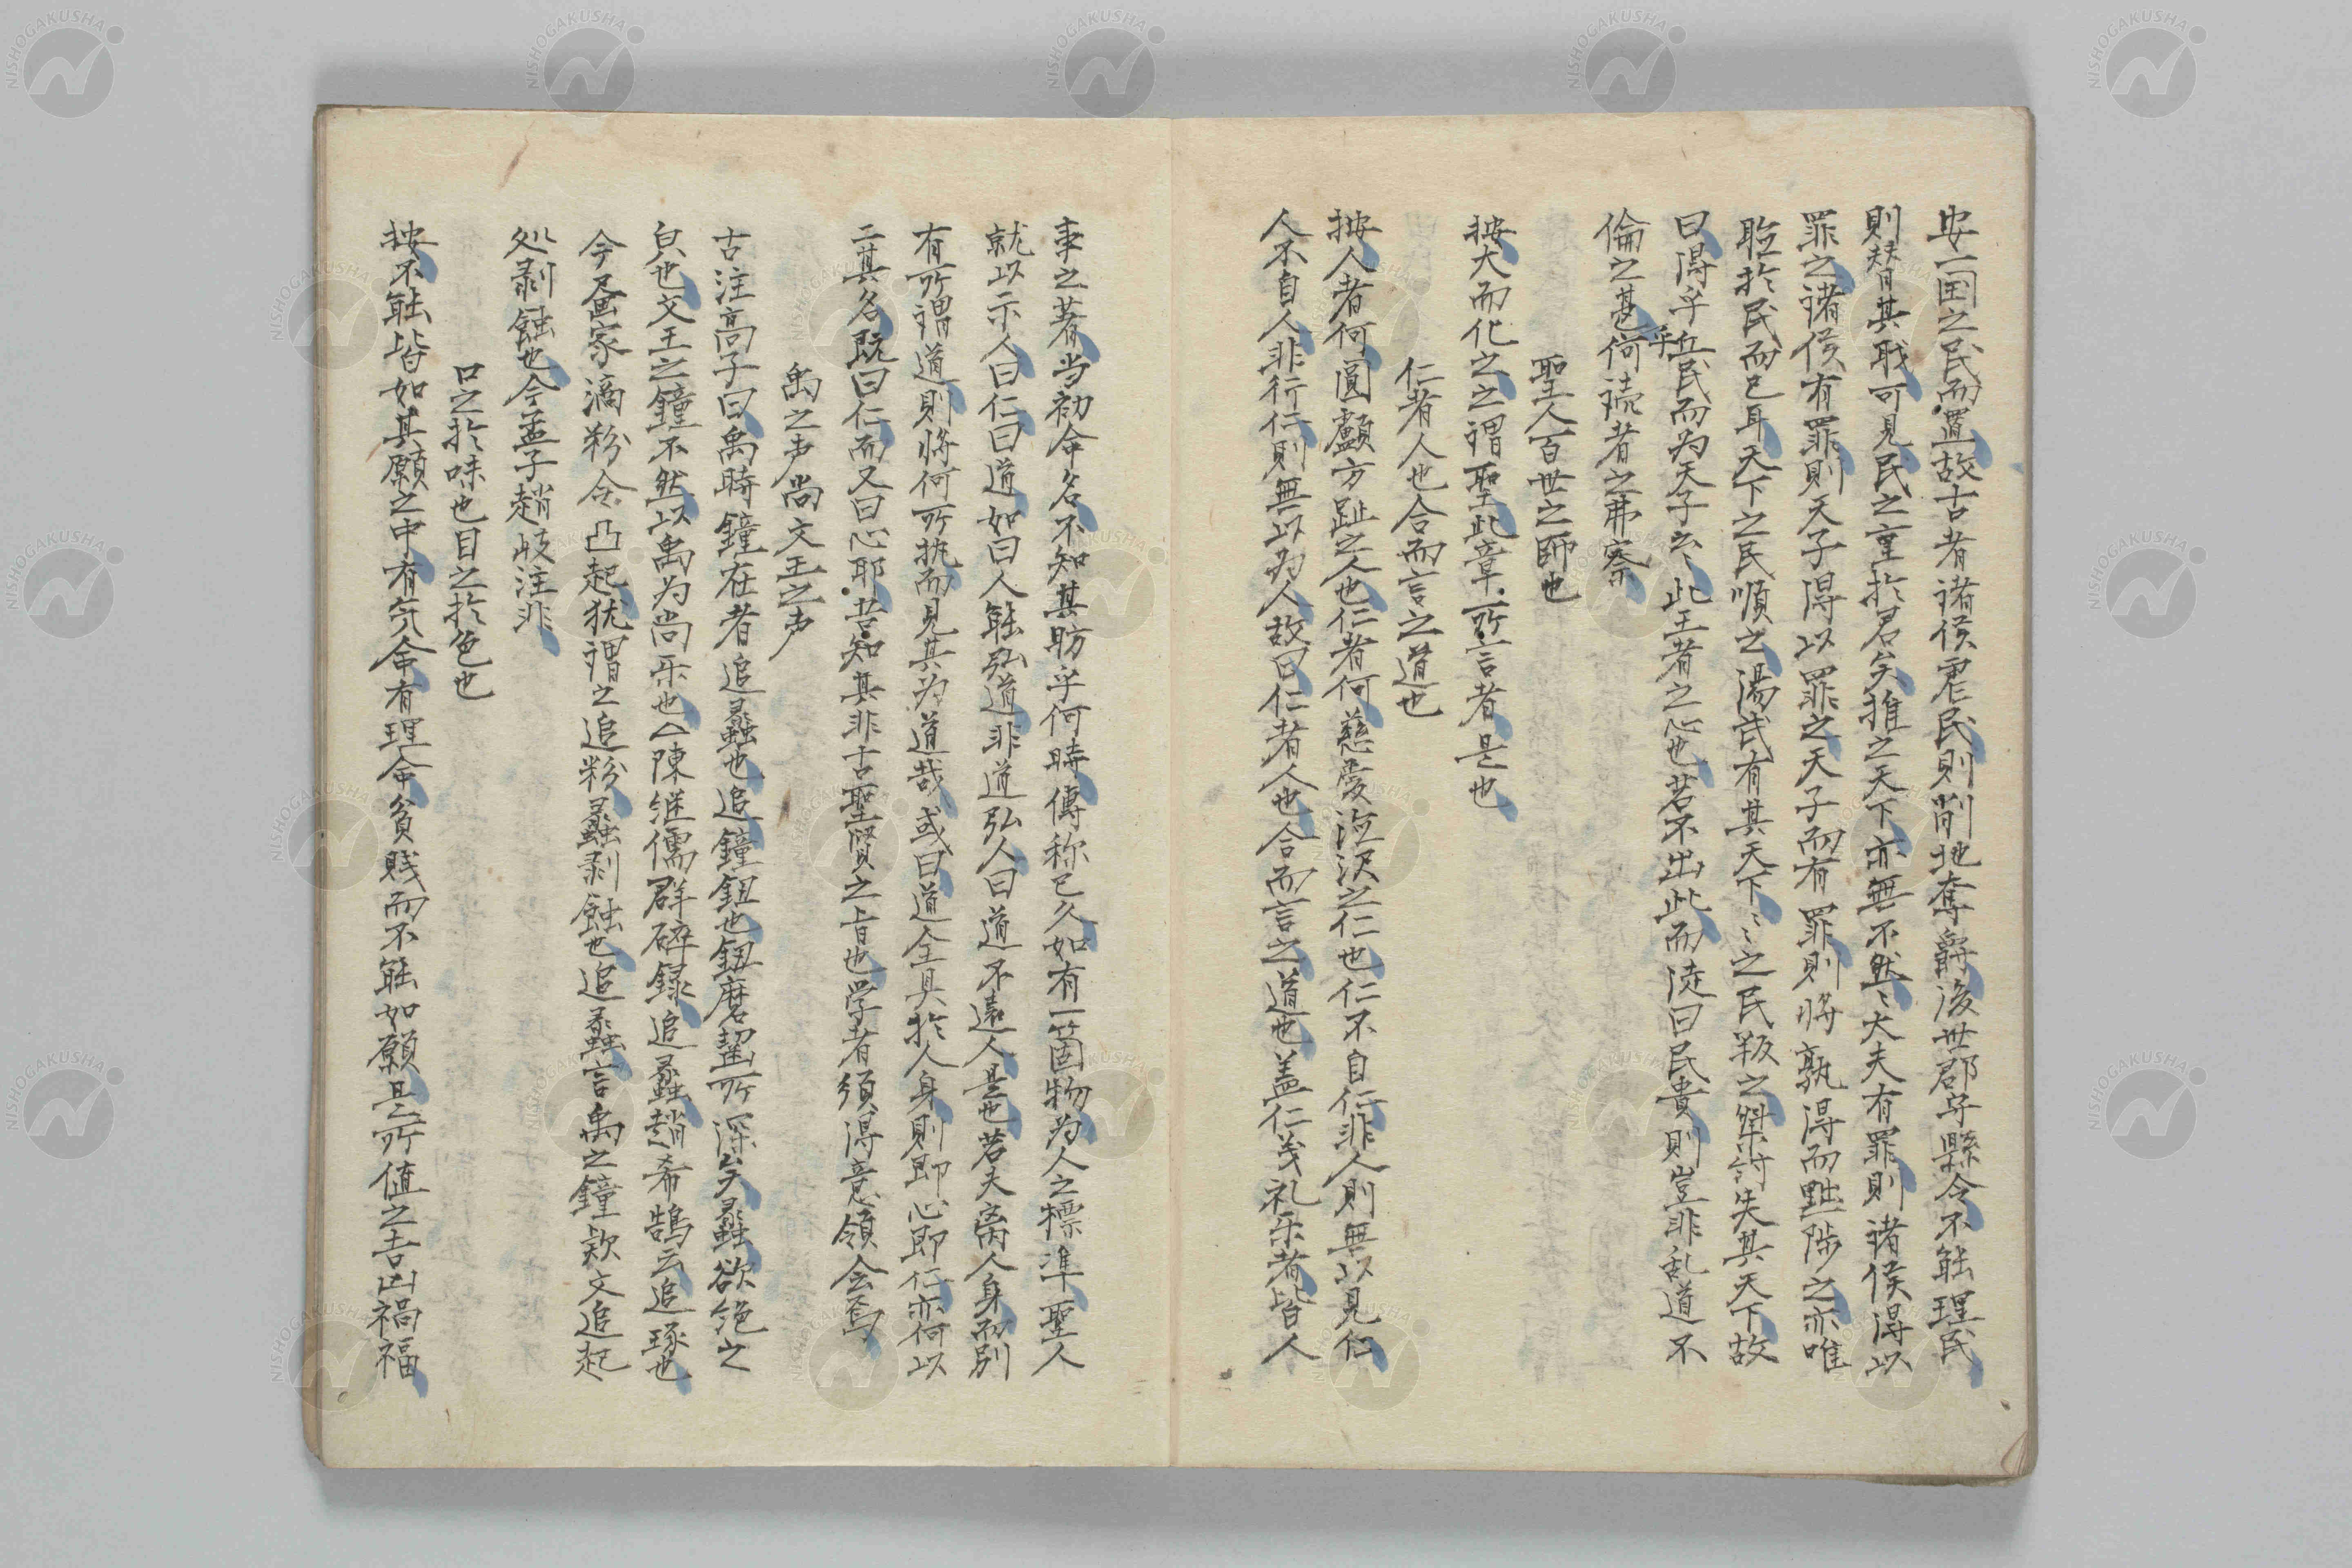 安一国之民而置故古者諸侯虐民則削地奪爵後世郡守縣令不能理民
則替其職可見民之重於君矣推之天下亦無不然〻大夫有罪則諸侯得以
罪之諸侯有罪則天子得以罪之天子而有罪則将孰得而黜陟之亦唯
聴於民而已耳天下之民順之湯武有其天下〻〻之民叛之桀紂失其天下故
曰得乎丘民而为天子云〻此王者之心也若不出此而徒曰民貴則豈非乱道不
倫之甚乎何読者之弗察
聖人百世之師也
按大而化之之謂聖此章所言者是也
仁者人也合而言之道也
按人者何圓顱方趾之人也仁者何慈愛 沢之仁也仁不自仁非人則無以見仁
人不自人非行仁則無以为人故曰仁者人也合而言之道也盖仁义礼乐者皆人
事之著当初命名不知其昉乎何時傳称已久如有一箇物为人之標準聖人
就以示人曰仁曰道如曰人能弘道非道弘人曰道不遠人是也若夫离人身而别
有所謂道則将何所执而見其为道哉或曰道全具於人身則即心即仁亦何以
二其名既曰仁而又曰心耶苦知其非古聖賢之旨也学者須得意領会焉
禹之声尚文王之声
古注高子曰禹時鐘在者追蠡也追鐘鈕也鈕磨齧所深矣蠡欲絶之
皃也文王之鐘不然以禹为尚乐也△陳继儒群碎録追蠡趙希鵠云追琢也
今画家滴粉令凸起犹謂之追粉蠡剥蝕也追蠡言禹之鐘款文追起
処剥蝕也今孟子趙岐注非
口之於味也目之於色也
按不能皆如其願之中有気命有理命貧賎而不能如願是所值之吉凶禍福